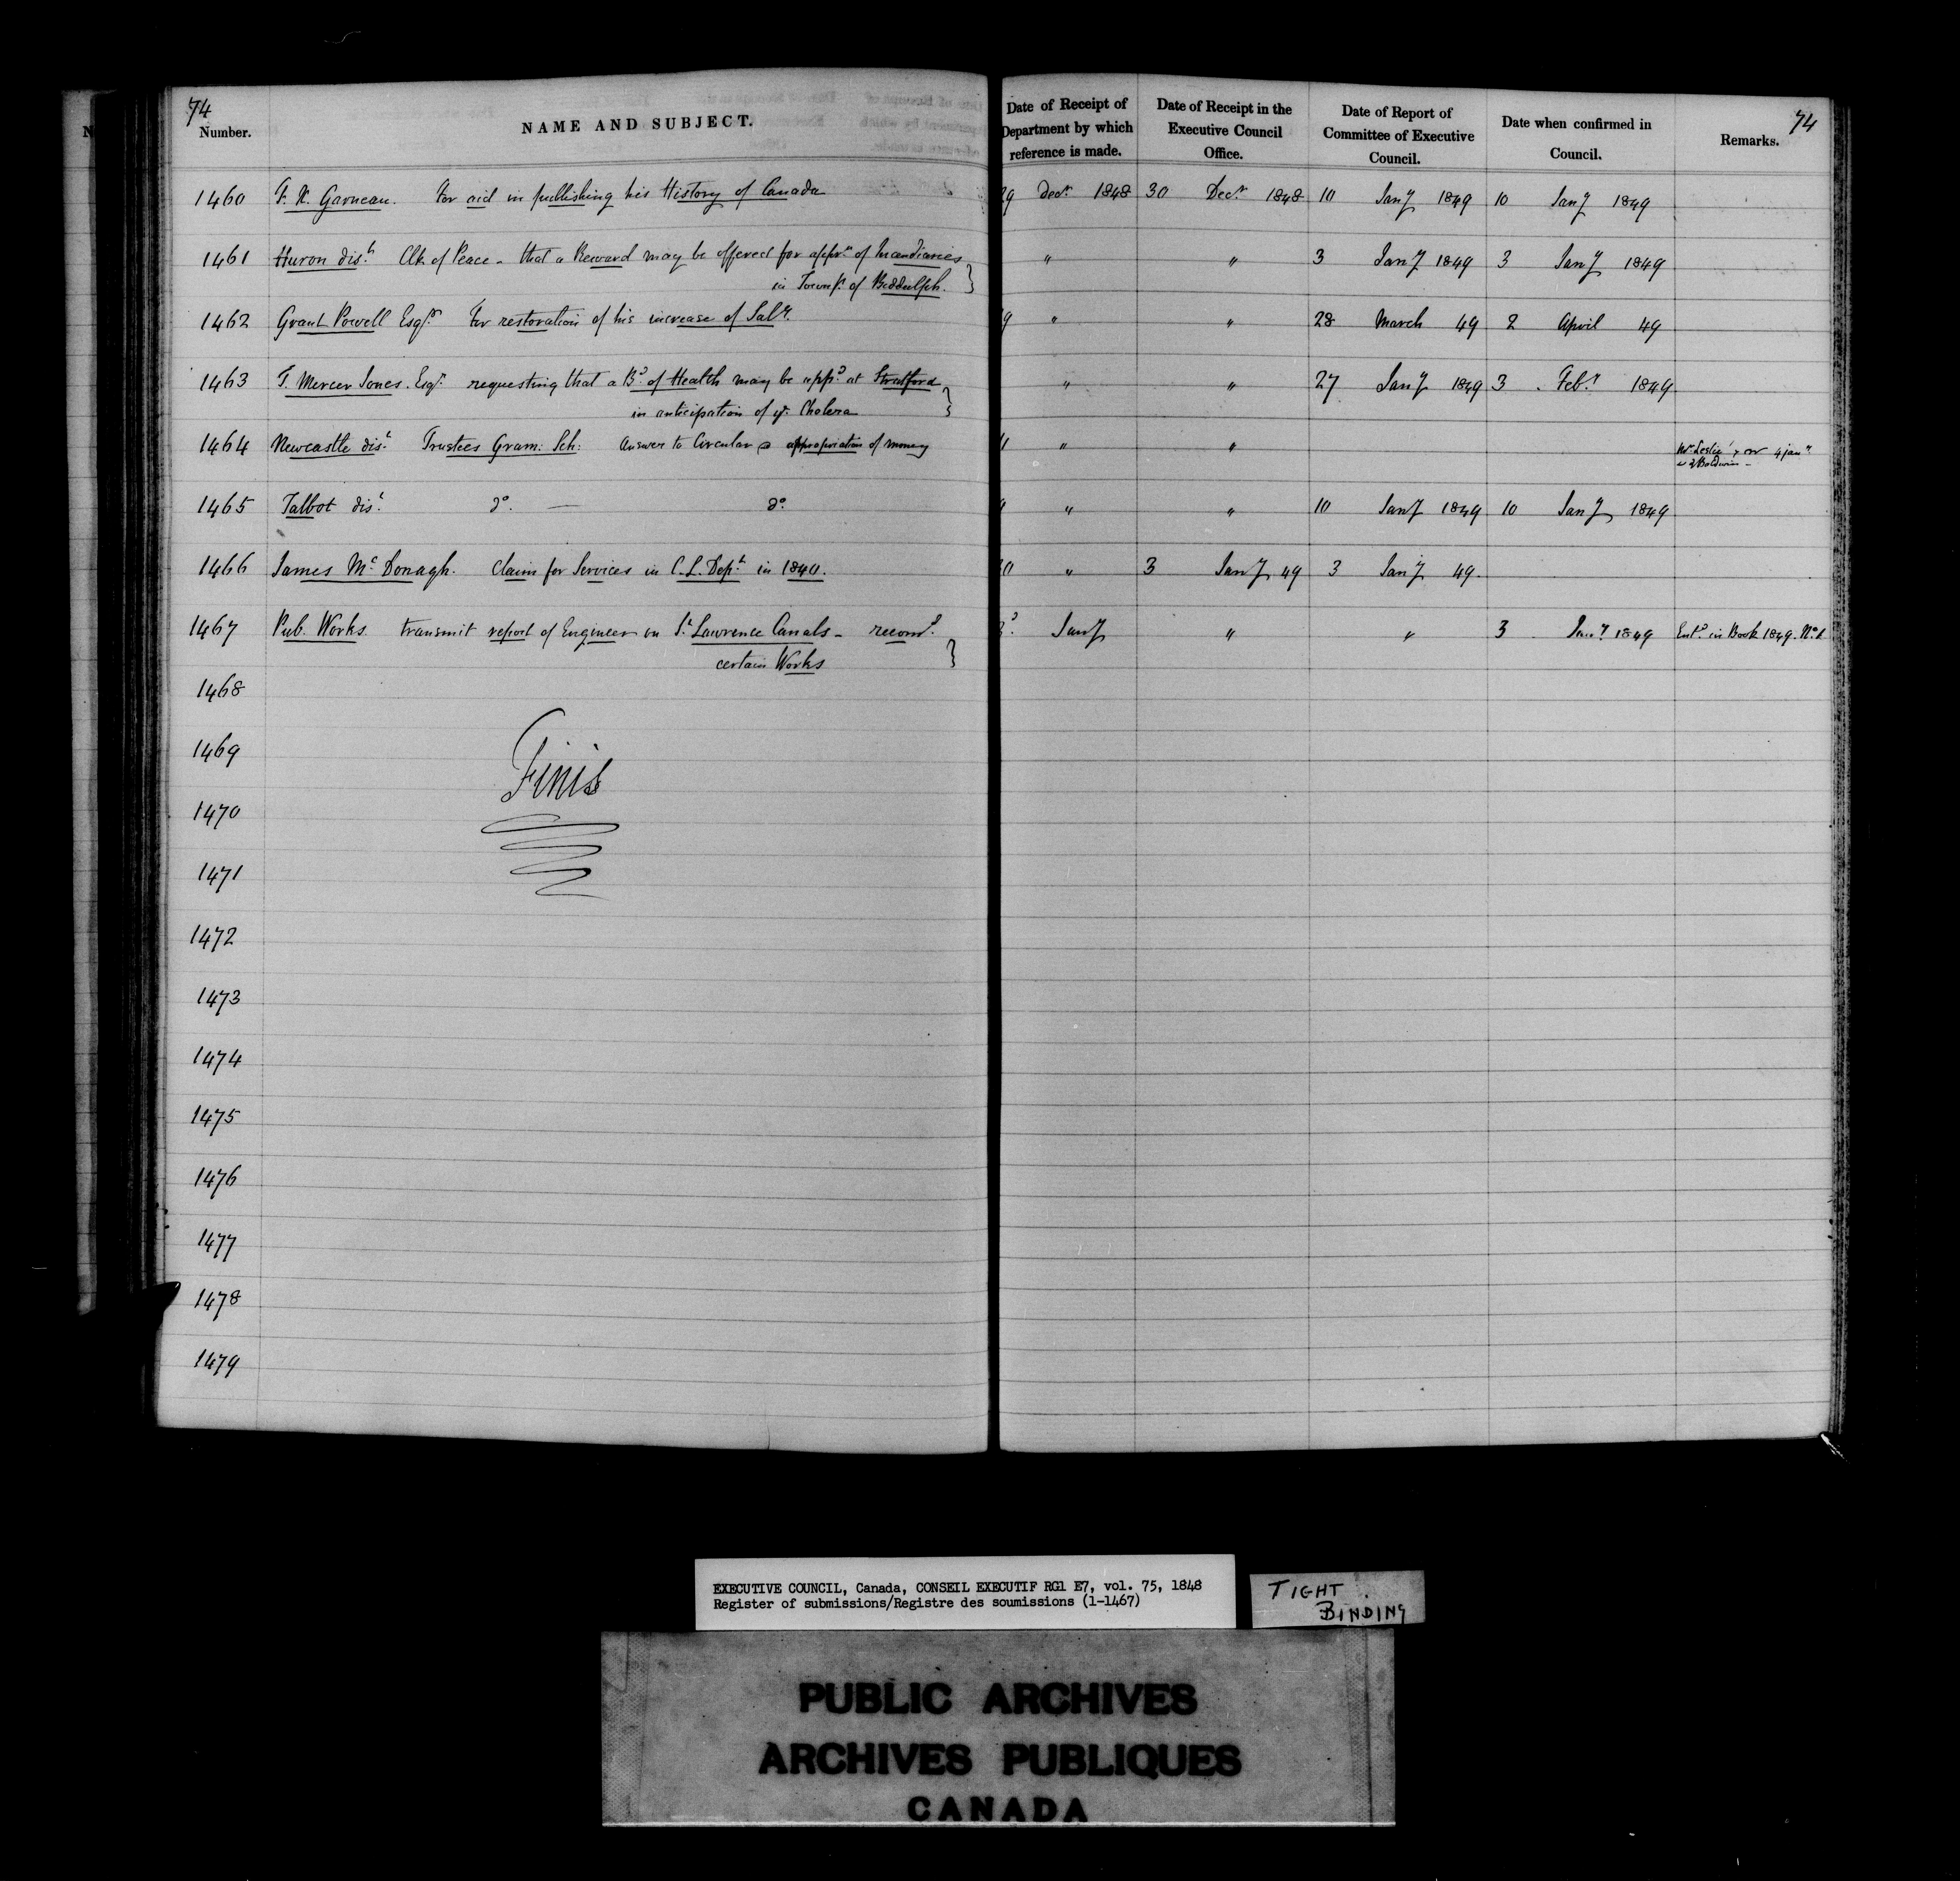 74
Number. NAME AND SUBJECT.
Date of Receipt of Department by which reference is made. Date of Receipt in the Executive Council Office. Date of Report of Committee of Executive Council. Date when confirmed in Council. Remarks. 74
1460 F. X. Garneau. For aid in publishing his History of Canada 29 Decr. 1848 30 Decr. 1848 10 Jany 1849 10 Jany 1849
1461 Huron dist. Clk of Peace - that a Reward may be offered for appn. of Incendiaries " " 3 Jany 1849 3 Jany 1849
in Townp. of Biddulph. }
1462 Grant Powell Esqr. For restoration of his increase of Saly. 9 " " 28 March 49 2 April 49
1463 T. Mercer Jones. Esqr. requesting that a Bd. of Health may be appd. at Stratford " " 27 Jany 1849 3 Feby 1849
in anticipation of ye. Cholera }
1464 Newcastle dist. Trustees Gram: Sch: Answer to Circular appropriation of money " " " Mr. Leslie 4 jany
Baldwin -
1465 Talbot dist. do. — do. " " " 10 Jany 1849 10 Jany 1849
1466 James McDonagh. Claim for Services in C. L. Dept. in 1840. 30 " 3 Jany 49 3 Jany 49.
1467 Pub. Works. transmit report of Engineer on St. Lawrence Canals - recomd. Jany " " 3 Jany 1849 Entd. in Book 1849. No. 1
certain Works }
1468
1469
Finis
1470
1471
1472
1473
1474
1475
1476
1477
1478
1479
EXECUTIVE COUNCIL, Canada, CONSEIL EXECUTIF RG1 E7, vol. 75, 1848
Register of submissions/Registre des soumissions (1-1467)
TIGHT
BINDING
PUBLIC ARCHIVES
ARCHIVES PUBLIQUES
CANADA